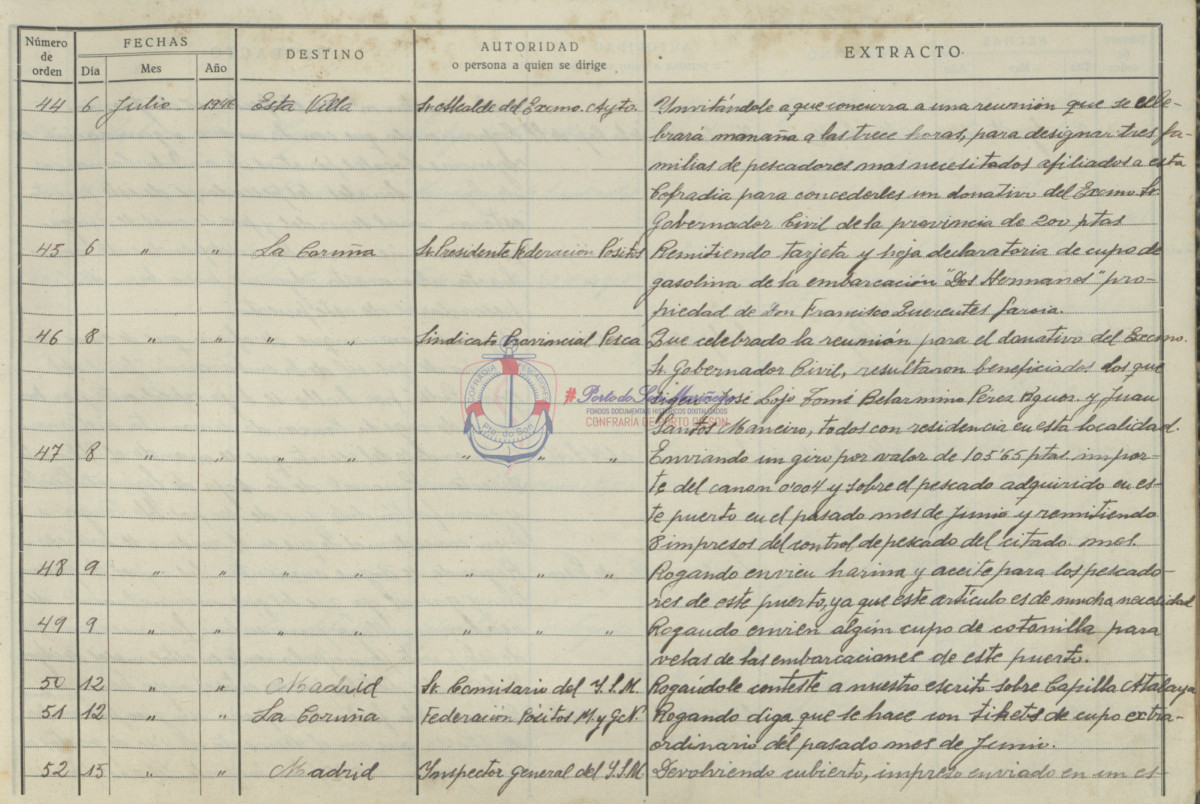 Número de orden FECHAS DESTINO AUTORIDAD EXTRACTO
Día Mes Año o persona a quien se dirige
44 6 Julio Esta Villa Sr. Alcalde del Excmo. Ayto. Ynvitándole a que concurra a una reunión que se cele-
brará manaña a las trece horas, para designar tres fa-
milias de pescadores mas necesitados afiliados a esta
Cofradia para concederles un donativo del Excmo. Sr.
Gobernador Civil de la provincia de 200 ptas
45 6 " " La Coruña Sr. Presidente Federación Pósitos Remitiendo tarjeta y hoja declaratoria de cupo de
gasolina de la embarcación "Dos Hermanos" pro-
piedad de Don Francisco
46 8 " " " " Sindicato Provincial Pesca Que celebrado la reunión para el donativo del Excmo.
Sr. Gobernador Civil, resultaron beneficiados los que
siguen José Lojo Tomé Belarmino Pérez y Juan
Santos Maneiro, todos con residencia en esta localidad.
47 8 " " " " " " " Enviando un giro por valor de 105'65 ptas. impor-
te del canon 0'004 y sobre el pescado adquirido en es-
te puerto en el pasado mes de Junio y remitiendo
8 impresos del control de pescado del citado mes.
48 9 " " " " " " " Rogando envien harina y aceite para los pescado-
res de este puerto, ya que este artículo es de mucha necesidad
49 9 " " " " " " " Rogando envien algún cupo de cotonilla para
velas de las embarcaciones de este puerto.
50 12 " " Madrid Sr. Comisario del Y.S.M. Rogándole conteste a nuestro escrito sobre Capilla Atalaya
51 12 " " La Coruña Federación Pósitos M. y Rogando diga que se hace con tikets de cupo extra-
ordinario del pasado mes de Junio.
52 15 " " Madrid Ynspector general del Y.S.M. Devolviendo cubierto, impreso enviado en un es-
COFRADÍA PESCADORES
Pto. do Son
#PortodoSonMariñeiro
FONDOS DOCUMENTAIS HISTÓRICOS DIXITALIZADOS
CONFRARÍA DE PORTO DO SON